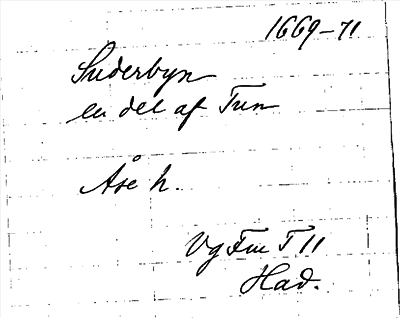 1669-71
Suderbyn
en del af Tun
Åse h.
Vg Fm T 11
Had.